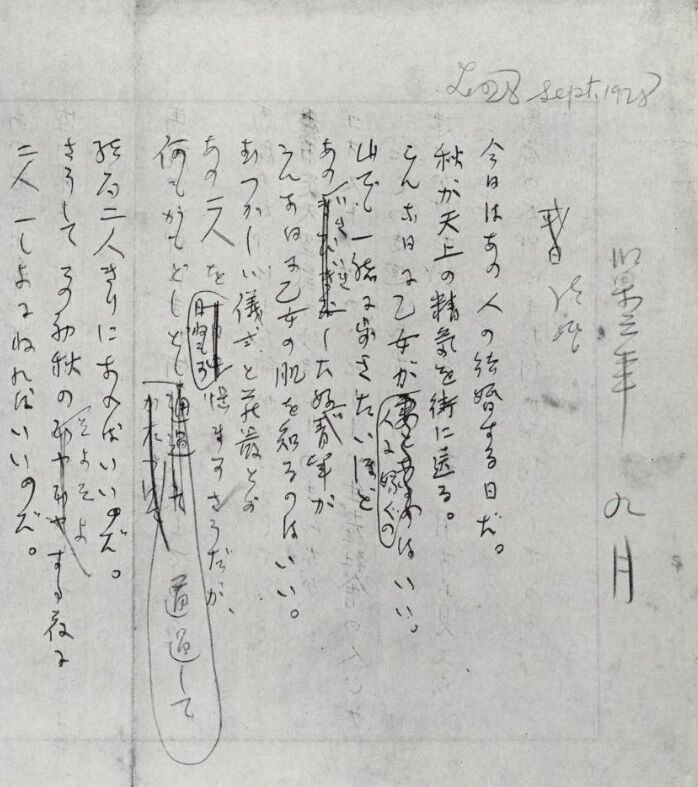 28 Sept. 1928
昭和三年 九月
或日
今日はあの人の結婚する日だ。
秋が天上の精氣を街に送る。
こんな日に乙女が人に嫁ぐのはいい。
山でも一緒に歩きたいほど
あの いきいきした好青年が
こんな日に乙女の肌を知るのはいい。
むつかしい儀式と荘嚴とが
あの二人を すさうだが、
何もかもどしどし通過して
結局二人きりになればいいのだ。
さうしてこの初秋のそよそよする夜に
二人一しよにねればいいのだ。